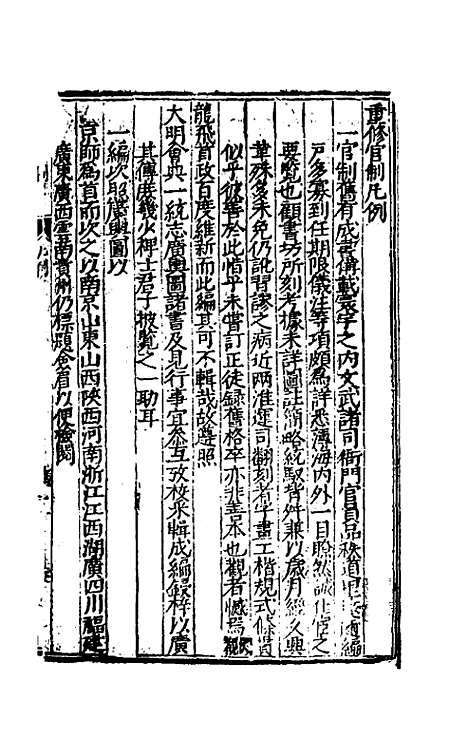 重修官制凡例
一官制舊有成書備載寰宇之内文武諸司衙門官員品秩道里
戶多寡到任期限儀注等項頗為詳悉薄海内外一目瞭然誠仕宦之
要覽也顧書坊所刻考據未詳圖註簡略統馭皆舛兼以歲月經久興
革殊多未免仍訛習謬之病近兩淮運司翻刻者字畫工楷規式條貫
似乎彼善於此惜乎未嘗訂正徒録舊格卒亦非善本也觀者憾焉
龍飛首政百度維新而此編其可不輯哉故遵照
大明會典一統志廣輿圖諸書及見行事宜叅互攷校采輯成編鋟梓以廣
其傳庶幾少裨士君子披覽之一助耳
一編次照廣輿圖以
京師為首而次之以南京山東山西陝西河南浙江江西湖廣四川福建
廣東廣西雲南貴州仍標題各省以便檢閱